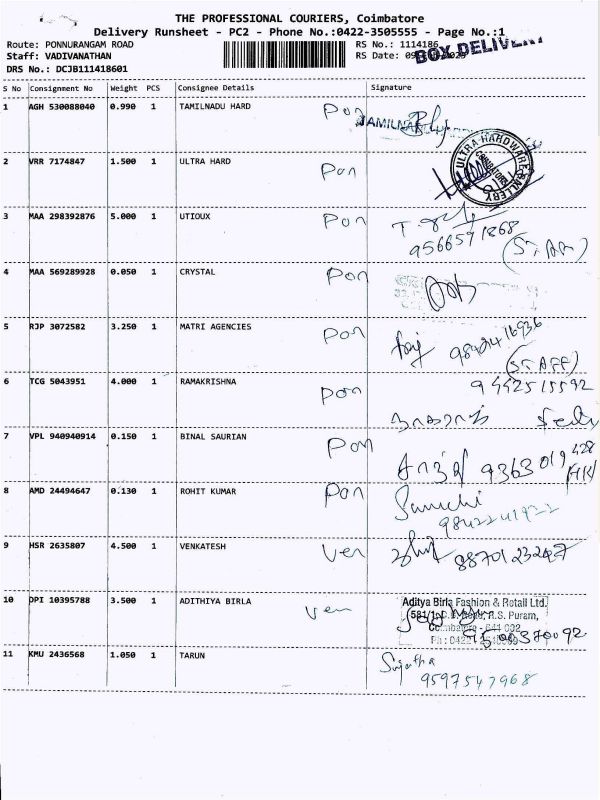 THE PROFESSIONAL COURIERS, Coimbatore
Delivery Runsheet - PC2 - Phone No.:0422-3505555 - Page No.:1
Route: PONNURANGAM ROAD RS No.: 1114186
Staff: VADIVANATHAN RS Date:
BOX DELIVERY
DRS No.: DCJB111418601
S No Consignment No Weight PCS Consignee Details Signature
1 AGH 530088040 0.990 1 TAMILNADU HARD Pon
2 VRR 7174847 1.500 1 ULTRA HARD Pon ULTRA HARDWARE GALLERY COIMBATORE
3 MAA 298392876 5.000 1 UTIOUX Pon
9566571868
(STAFF)
4 MAA 569289928 0.050 1 CRYSTAL Pon
5 RJP 3072582 3.250 1 MATRI AGENCIES Pon
(STAFF)
6 TCG 5043951 4.000 1 RAMAKRISHNA Pon 9442515592
7 VPL 940940914 0.150 1 BINAL SAURIAN Pon 9363019428
8 AMD 24494647 0.130 1 ROHIT KUMAR Pon
9842241922
9 HSR 2635807 4.500 1 VENKATESH Ven
10 DPI 10395788 3.500 1 ADITHIYA BIRLA Ven Aditya Birla Fashion & Retail Ltd.
R.S. Puram,
Coimbatore - 641 002
11 KMU 2436568 1.050 1 TARUN Sujatha
9597547968